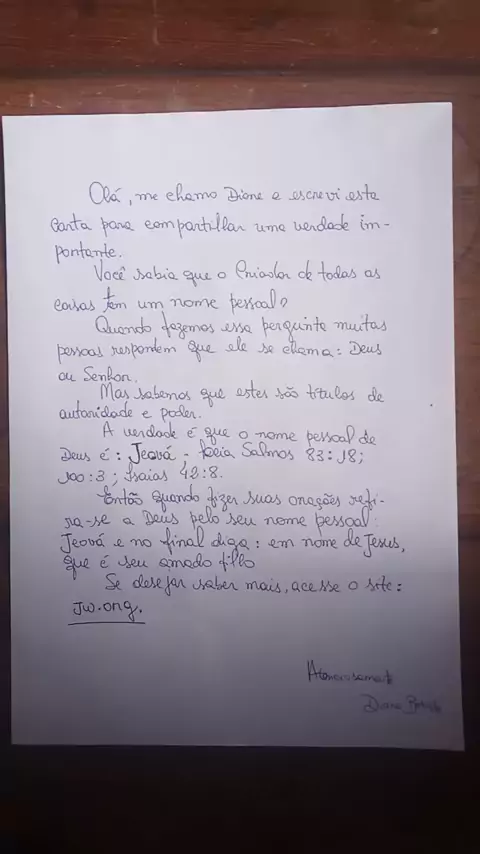 Olá, me chamo Dione e escrevi esta
carta para compartillar uma verdade im-
pontante.
Você sabia que o Criador de todas as
coisas tem um nome pessoal?
Quando fazemos essa pergunta muitas
pessoas respondem que ele se chama: Deus
ou Senhor.
Mas sabemos que estes são títulos de
autoridade e poder.
A verdade é que o nome pessoal de
Deus é: Jeová - Leia Salmos 83:18;
100:3; Isaias 42:8.
Então quando fizer suas orações refi-
ra-se a Deus pelo seu nome pessoal:
Jeová e no final diga: em nome de Jesus,
que é seu amado fillo
Se desejar saber mais, acesse o site:
JW.org.
Atenciosamente
Dione